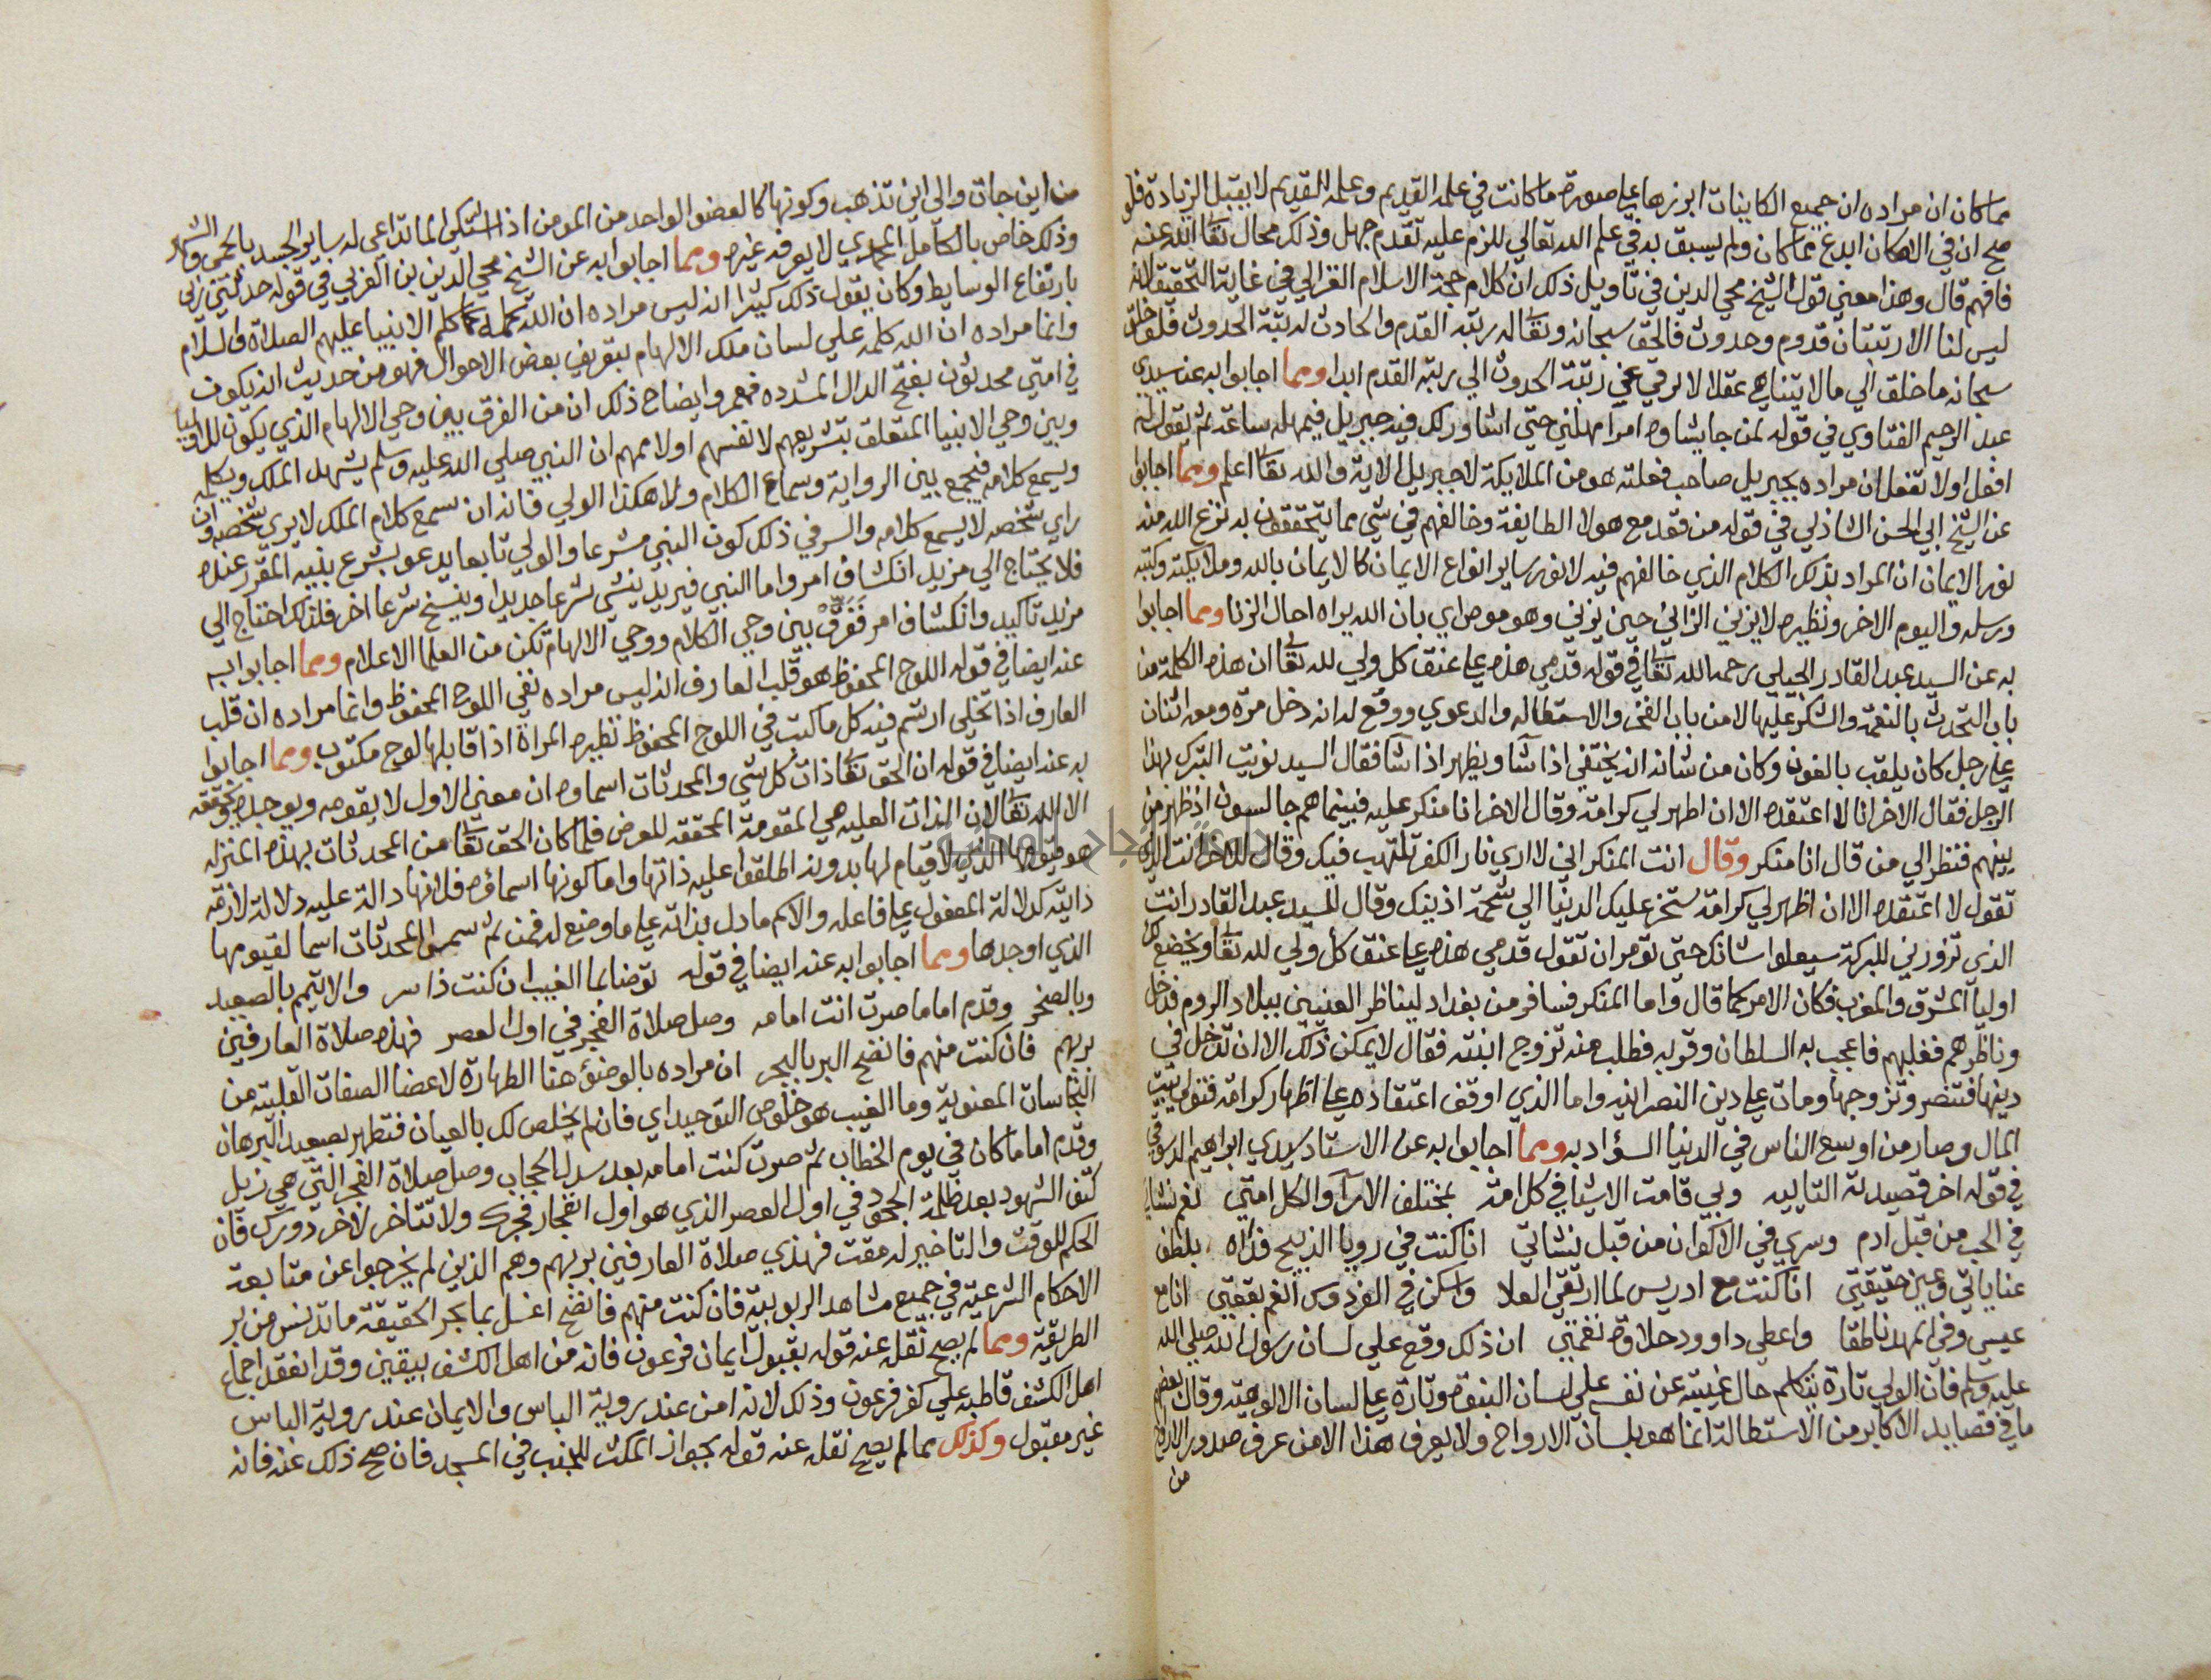 مما كان ان مراده ان جميع الكاينات ابرزها علي صورة ما كانت في علمه القديم وعلمه القديم لا يقبل الزيادة فلو
صح ان في الامكان ابدع مما كان ولم يسبق به في علم الله تعالي للزم عليه تقدم جهل وذلك محال تعا الله عنه
فافهم قال وهذا معني قول الشيخ محي الدين في تاويل ذلك ان كلام حجة الاسلام الغزالي في غاية التحقيق لانه
ليس لنا الا رتبتان قدم وحدوث فالحق سبحانه وتعا له رتبة القدم والحادث له رتبة الحدوث فلو خلق
سبحانه ما خلق الي ما لا يتناهي عقلا لا لا يرقي عن رتبة الحدوث الي رتبة القدم ابدا ومما اجابوا به عن سيدي
عبد الرحيم القناوي في قوله لمن جا يشاوره امرا مهلني حتي اشاور لك فيه جبريل فيمهله ساعة ثم يقول له
افعل او لا تفعل ان مراده بجبريل صاحب فعلته هو من الملايكة لا جبريل الاية والله تعا اعلم ومما اجابوا
عن الشيخ ابي الحسن الشاذلي في قوله من قعد مع هولا الطايفة وخالفهم في شي مما يتحققون به نزع الله منه
نور الايمان ان المراد بذلك الكلام الذي خالفهم فيه لا نور ساير انواع الايمان كالايمان بالله وملايكته وكتبه
ورسله واليوم الاخر ونظيره لا يزني الزاني حين يزني وهو مومن اي بان الله يراه احال الزنا ومما اجابوا
به عن السيد عبد القادر الجيلي رحمه الله تعا في قوله قدمي هذه علي عنق كل ولي لله تعا ان هذه الكلمة من
باب التحدث بالنعمة والشكر عليها لا من باب الفخر والاستطاله والدعوي ووقع له انه دخل مرة ومعه اثنان
علي رجل كان يلقب بالغوث وكان من شانه انه يختفي اذا شا ويظهر اذا شا فقال السيد نويت التبرك بهذا
الرجل فقال الاخر انا لا اعتقده الا ان اظهر لي كرامة وقال الاخر انا منكر عليه فبينما هم جالسون اذ ظهر من
بينهم فنظر الي من قال انا منكر وقال انت المنكر اني لا اري نار الكفر تلتهب فيك وقال للاخر انت الذي
تقول لا اعتقده الا ان اظهر لي كرامة ستخر عليك الدنيا الي شحمة اذنيك وقال للسيد عبد القادر انت
الذي تزورني للبركة سيعلوا شانك حتي تومر ان تقول قدمي هذه علي عنق كل ولي لله تعا ويخضع لك
اوليا المشرق والمغرب فكان الامر كما قال واما المنكر فسافر من بغداد ليناظر القسيسين ببلاد الروم فدخل
وناظرهم فغلبهم فاعجب به السلطان وقربه فطلب منه تزوج ابنته فقال لا يمكن ذلك الا ان تدخل في
دينها فتنصر وتزوجها ومات علي دين النصرانيه واما الذي اوقف اعتقاده علي اظهار كرامة فتولي بيت
المال وصار من اوسع الناس في الدنيا السؤاد به ومما اجابوا به عن الاستاد سيدي ابراهيم الدسوقي
في قوله اخر قصيدته التاييه وبي قامت الاشيا في كل امة بمختلف الارآ والكل امتي نعم نشاتي
في الحب من قبل ادم وسري في الاكوان من قبل نشاتي انا كنت في رويا الذبيح فداه بلطف
عناياتي وعين حقيقتي انا كنت مع ادريس لما ارتقي العلا واسكن في الفردوس انعم بقعتي انا مع
عيسي وفي المهد ناطقا واعطي داوود حلاوة نغمتي ان ذلك وقع علي لسان رسول الله صلي الله
عليه وسلم فان الولي تارة يتكلم حال غيبته عن نفسه علي لسان النبوة وتارة علي لسان الالوهية وقال بعضهم
ما في قصايد الاكابر من الاستطالة انما هو بلسان الارواح ولا يعرف هذا الا من عرف صدور الارواح
من
من اين جات والي اين تذهب وكونها كالعضو الواحد من المومن اذا اشتكي الما تداعي له ساير الجسد بالحمي والسهر
وذلك خاص بالكامل المحمدي لا يعرفه غيره ومما اجابوا به عن الشيخ محي الدين بن العربي في قوله حدثني ربي
بارتفاع الوسايط وكان يقول ذلك كثيرا انه ليس مراده ان الله كلمه كما كلم الانبيا عليهم الصلاة والسلام
وانما مراده ان الله كلمه علي لسان ملك الالهام بتعريف بعض الاحوال فهو من حديث ان يكون
في امتي محدثون بفتح الدال المشدده فعمر وايضاح ذلك ان من الفرق بين وحي الالهام الذي يكون للاوليا
وبين وحي الانبيا المتعلق بتشريعهم لانفسهم او لاممهم ان النبي صلي الله عليه وسلم يشهد الملك ويكلمه
ويسمع كلامه فيجمع بين الرواية وسماع الكلام ولا هكذا الولي فانه ان سمع كلام الملك لا يري شخصه وان
راي شخصه لا يسمع كلامه والسر في ذلك كون النبي مشرعا والولي تابعا يدعو بشرع نبيه المقرر عنده
فلا يحتاج الي مزيد انكشاف امر واما النبي فيريد ينشي شرعا جديدا وينسخ شرعا اخر فلذلك احتاج الي
مزيد تاكيد وانكشاف امر ففرق بين وحي الكلام ووحي الالهام تكن من العلما الاعلام ومما اجابوا به
عنه ايضا في قوله اللوح المحفوظ هو قلب العارف انه ليس مراده نفي اللوح المحفوظ وانما مراده ان قلب
العارف اذا تجلي ارتسم فيه كل ما كتب في اللوح المحفوظ نظيره المراة اذا قابلها لوح مكتوب ومما اجابوا
به عنه ايضا في قوله ان الحق تعا ذات كل شي والمحدثات اسماوه ان معني الاول لا يقومه ويوجده ويحققه
الا الله تعا لان الذات العليه هي المقومة المحققه للعرض فلما كان الحق تعا من المحدثات بهذه المنزله
هو قيومها الذي لا قيام لها بدونه اطلقوا عليه ذاتها واما كونها اسماؤه فلانها دالة عليه دلالة لازمة
ذاتيه كدلالة المفعول علي فاعله والاسم ما دل بذاته علي ما وضع له فمن ثم سمي المحدثات اسما لقيومها
الذي اوجدها ومما اجابوا به عنه ايضا في قوله توضا بما الغيب ان كنت ذا سر والا تيمم بالصعيد
وبالصخر وقدم اماما صرت انت امامه وصل صلاة الفجر في اول العصر فهذه صلاة العارفين
بربهم فان كنت منهم فانضح البر بالبحر ان مراده بالوضؤ هنا الطهارة لاعضا الصفات القلبية من
النجاسات المعنوية وما الغيب هو خلوص التوحيد اي فان لم يخلص لك بالعيان فتطهر بصعيد البرهان
وقدم اماما كان في يوم الخطاب ثم صرت كنت امامه بعد سدل الحجاب وصل صلاة الفجر التي هي نزيل
كتف الشهود بعد ظلمة الجحود في اول العصر الذي هو اول انفجار فجرك ولا تتاخر لاخر دورك فان
الحكم للوقت والتاخير له مقت فهذي صلاة العارفين بربهم وهم الذين لم يخرجوا عن متابعة
الاحكام الشرعيه في جميع مشاهد الربوبية فان كنت منهم فانضح اغسل بما بحر الحقيقة ما تدنس من بر
الطريقه ومما لم يصح نقله عنه قوله بقبول ايمان فرعون فانه من اهل الكشف بيقين وقد انعقد اجماع
اهل الكشف قاطبه علي كفر فرعون وذلك لانه امن عند روية الباس والايمان عند روية الباس
غير مقبول وكذلك مما لم يصح نقله عنه قوله بجواز المكث للجنب في المسجد فان صح ذلك عنه فانه